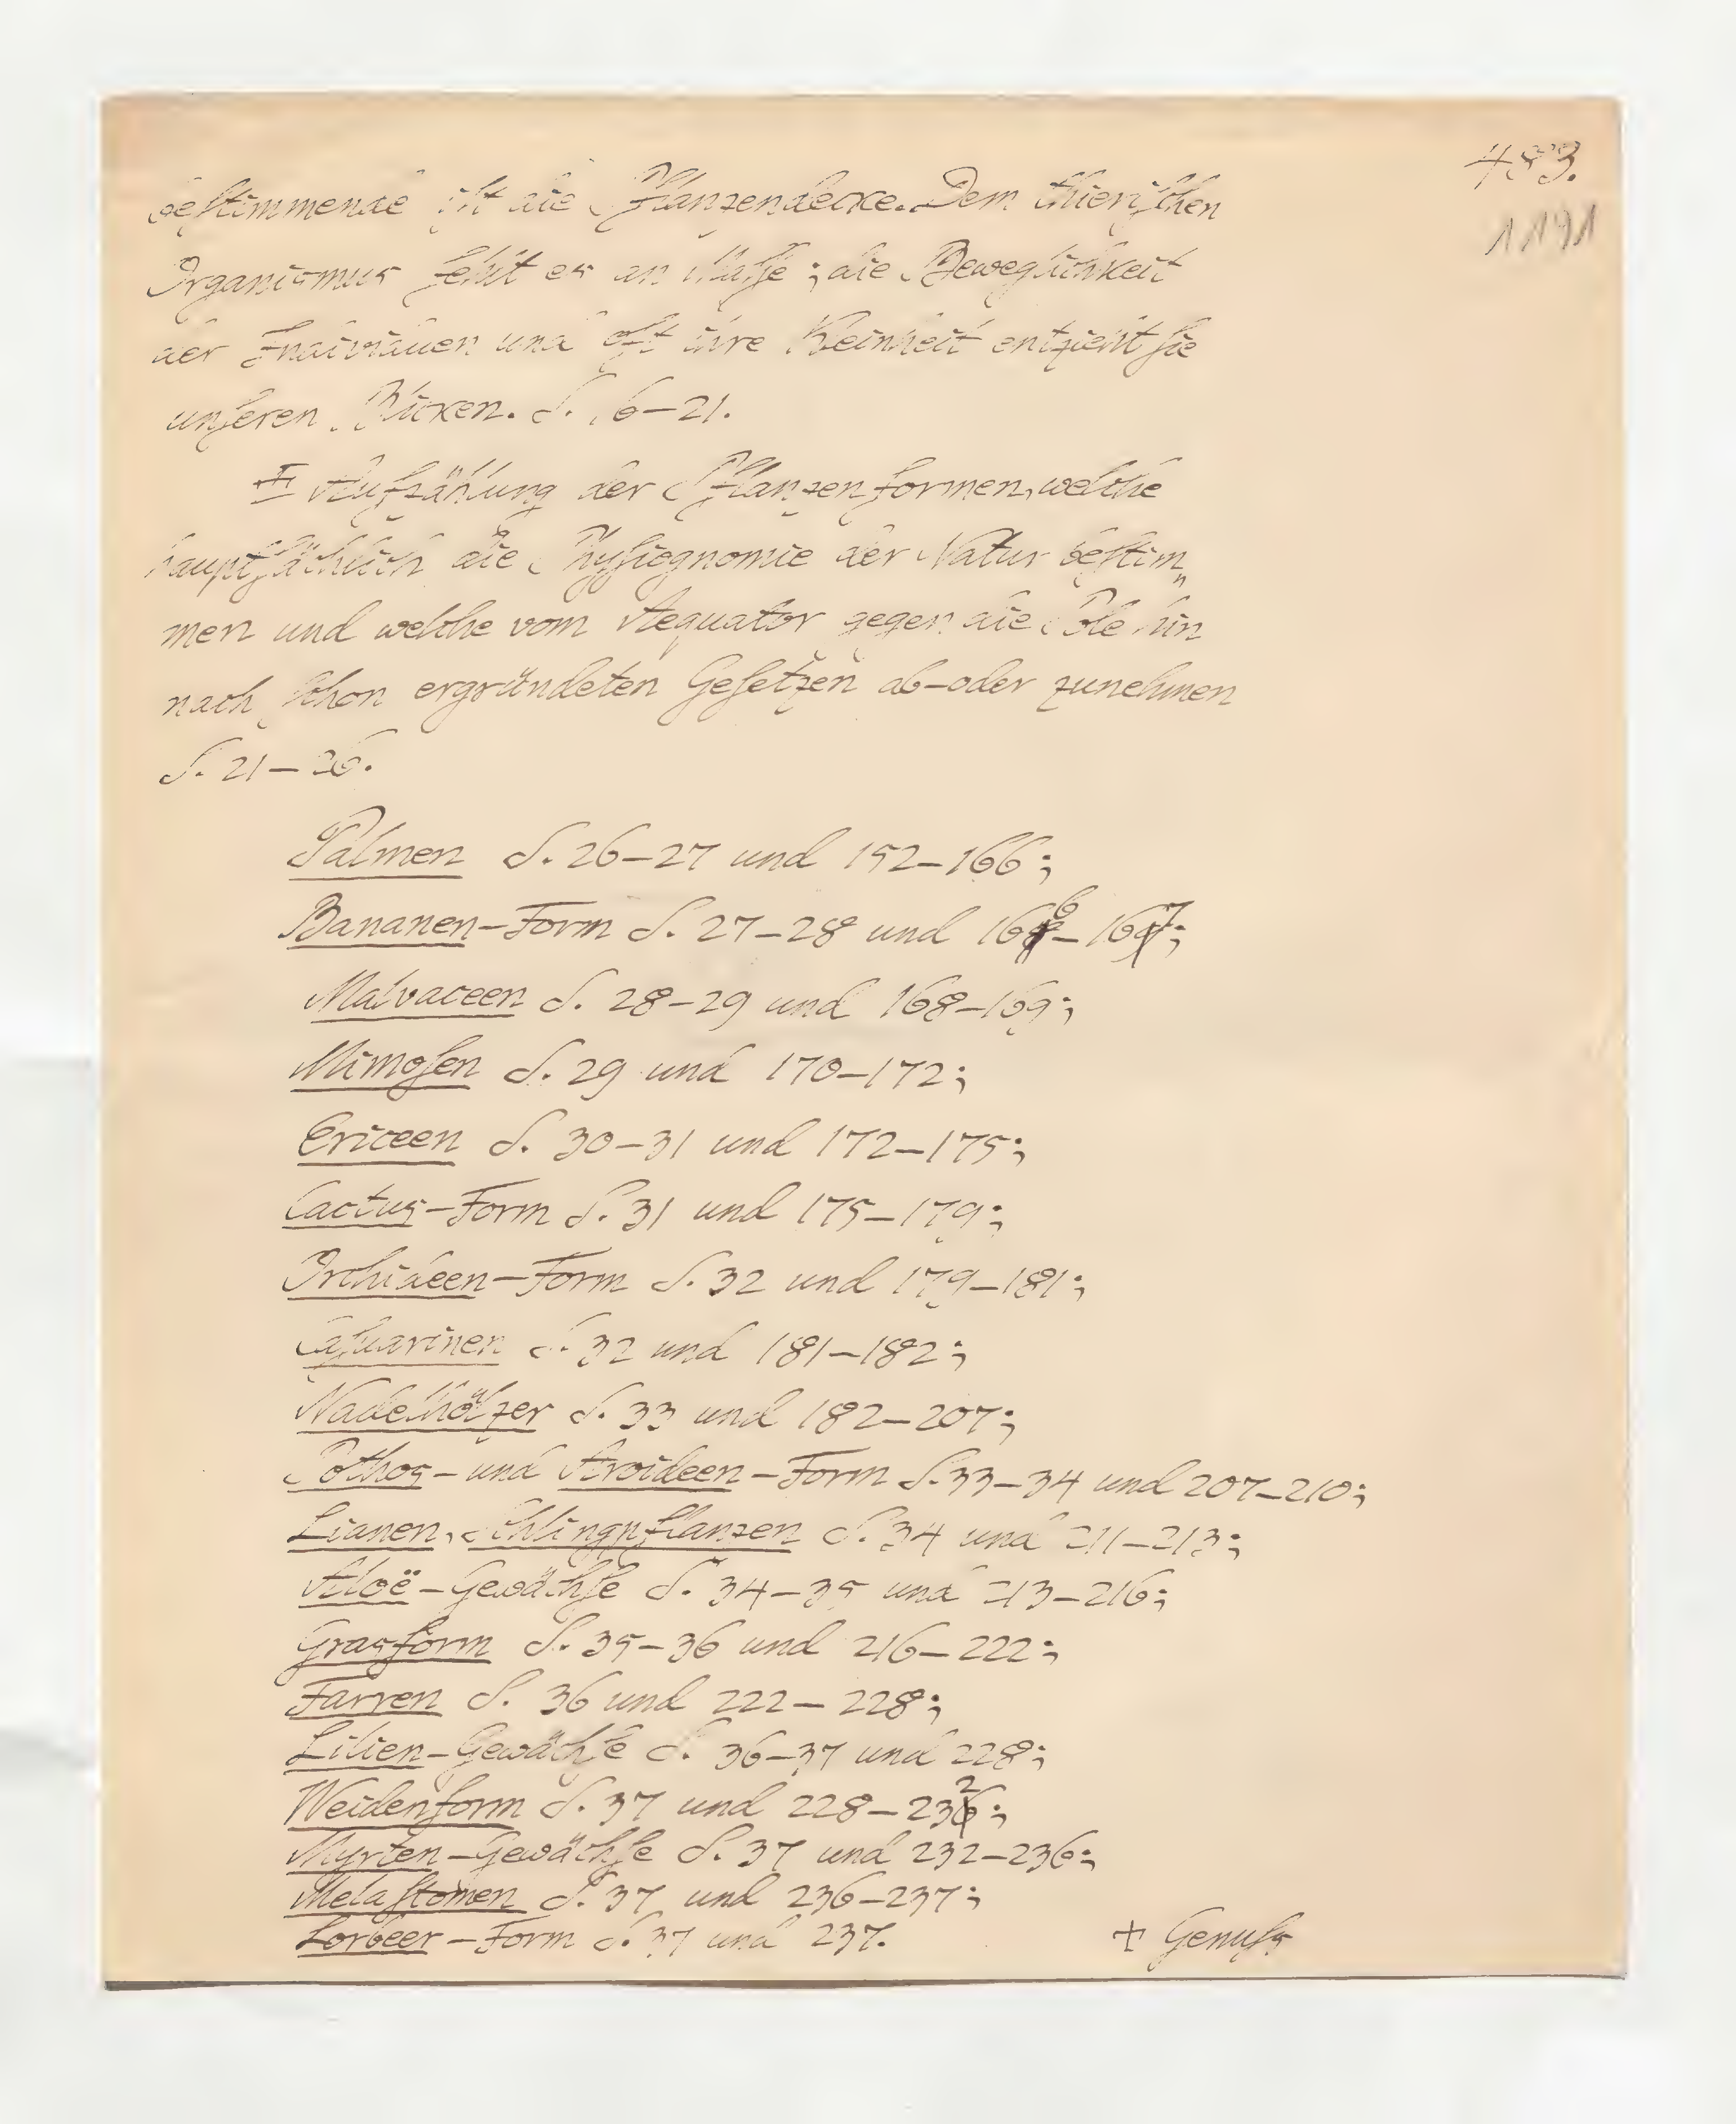 483.
1191
bestimmende ist die Pflanzendecke. Dem thierischen
Organismus fehlt es an Masse; die Beweglichkeit
der Individuen und oft ihre Kleinheit entzieht sie
unseren Blicken. S. 16–21.
Aufzählung der Pflanzenformen, welche
hauptsächlich die Physiognomie der Natur bestim„
men und welche vom Aequator gegen die Pole hin
nach schon ergründeten Gesetzen ab-oder zunehmen
S. 21–26.
Palmen S. 26–27 und 152–166;
Bananen-Form S. 27–28 und 166–167;
Malvaceen S. 28–29 und 168–169;
Mimosen S. 29 und 170–172;
Ericeen S. 30–31 und 172–175;
Cactus-Form S. 31 und 175–179;
Orchideen-Form S. 32 und 179–181;
Casuarinen S. 32 und 181–182;
Nadelhölzer S. 33 und 182–207;
Pothos- und Aroideen-Form S. 33–34 und 207–210;
Lianen, Schlingpflanzen S. 34 und 211–213;
Aloë-Gewächse S. 34–35 und 213–216;
Grasform S. 35–36 und 216–222;
Farren S. 36 und 222–228;
Lilien-Gewächse S. 36–37 und 228;
Weidenform S. 37 und 228–232;
Myrten-Gewächse S. 37 und 232–236;
Melastomen S. 37 und 236–237;
Lorbeer-Form S. 37 und 237.
+ Genuss